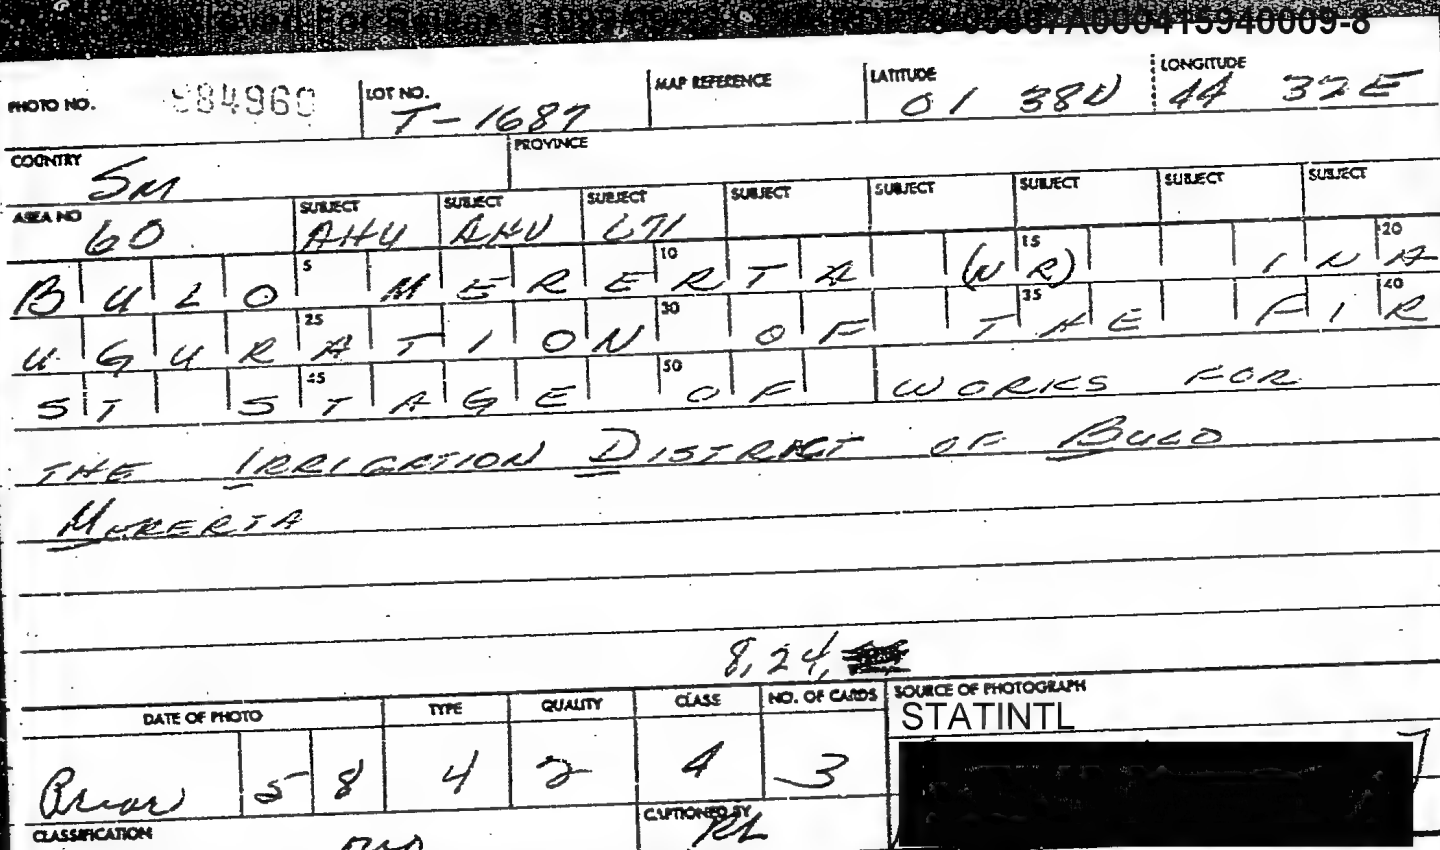 Approved For Release 1999/09/
78-05007A000415940009-8
PHOTO NO. 984960 LOT NO. T-1687 MAP REFERENCE LATITUDE 01 38N LONGITUDE 44 32E
COUNTRY SM PROVINCE
AREA NO 60 SUBJECT AHU SUBJECT AHU SUBJECT 671 SUBJECT SUBJECT SUBJECT SUBJECT SUBJECT
5 10 15 20
BULO MERERTA (NR) INA
25 30 35 40
UGURATION OF THE FIR
45 50
ST STAGE OF WORKS FOR
THE IRRIGATION DISTRICT OF BULO
MERERTA
8, 24,
DATE OF PHOTO TYPE QUALITY CLASS NO. OF CARDS SOURCE OF PHOTOGRAPH
STATINTL
Prior 58 4 2 4 3
CLASSIFICATION CAPTIONED BY RL